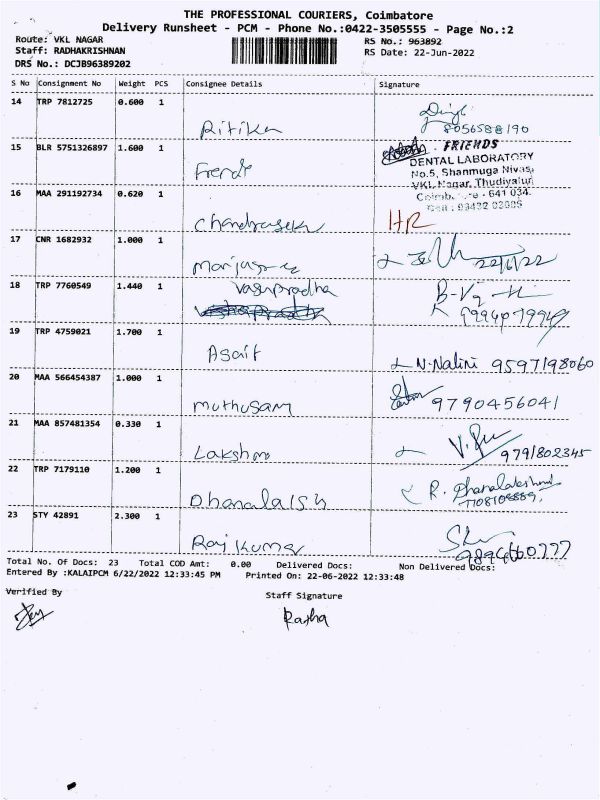 THE PROFESSIONAL COURIERS, Coimbatore
Delivery Runsheet - PCM - Phone No.:0422-3505555 - Page No.:2
Route: VKL NAGAR
RS No.: 963892
Staff: RADHAKRISHNAN
RS Date: 22-Jun-2022
DRS No.: DCJB96389202
S No Consignment No Weight PCS Consignee Details Signature
14 TRP 7812725 0.600 1
Ritika 8056588190
15 BLR 5751326897 1.600 1
FRIENDS
DENTAL LABORATORY
No.5, Shanmuga Nivas,
VKL Nagar, Thudiyalur
Frends
16 MAA 291192734 0.620 1
- 641 034.
Chandrasekr HR
17 CNR 1682932 1.000 1
22/6/22
18 TRP 7760549 1.440 1
Vasupradha
19 TRP 4759021 1.700 1
Asait N.Nalini 9597198060
20 MAA 566454387 1.000 1
muthusam 9790456041
21 MAA 857481354 0.330 1
Lakshm 9791802345
22 TRP 7179110 1.200 1
R. Dhanalakshmi
Dhanalaksh 7708108889
23 STY 42891 2.300 1
Rajkumar
Total No. Of Docs: 23 Total COD Amt: 0.00 Delivered Docs: Non Delivered Docs:
Entered By :KALAIPCM 6/22/2022 12:33:45 PM Printed On: 22-06-2022 12:33:48
Verified By
Staff Signature
Radha